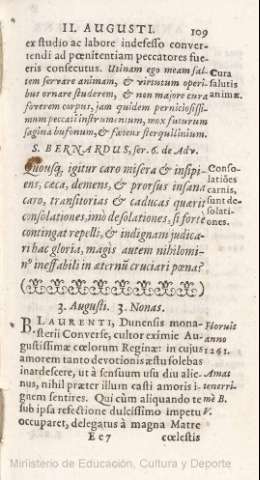 II. AUGUSTI. 109
ex studio ac labore indefesso conver-
tendi ad pœnitentiam peccatores fue-
eris consecutus. Utinam ego meam sal-
tem servare animam, & virtutum operi-
bus ornare studerem, & non majore cura
foverem corpus, jam quidem perniciosissi-
mum peccati instrumentum, mox futurum
sagina bufonum, & fœtens sterquilinium.
Cura
salutis
animæ.
S. BERNARDUS, ser. 6. de Adv.
Quousq; igitur caro misera & insipi-
ens, cæca, demens, & prorsus insana
caro, transitorias & caducas quæris
consolationes, imò desolationes, si forte
contingat repelli, & indignam judica-
ri hac gloria, magis autem nihilomi-
nº ineffabili in æternũ cruciari pœna?
Conso-
latiões
carnis,
sunt de-
solati-
ones.
3. Augusti. 3. Nonas.
B. LAURENTI, Dunensis mona-
sterii Converse, cultor eximie Au-
gustissimæ cœlorum Reginæ: in cujus
amorem tanto devotionis æstu solebas
inardescere, ut à sensuum usu diu alie-
nus, nihil præter illum casti amoris i-
gnem sentires. Qui cùm aliquando te
sub ipsa refectione dulcissimo impetu
occuparet, delegatus à magna Matre
Floruit
anno
1261.
Amat
tenerri-
mè B.
V.
Ee7 cœlestis
Ministerio de Educación, Cultura y Deporte